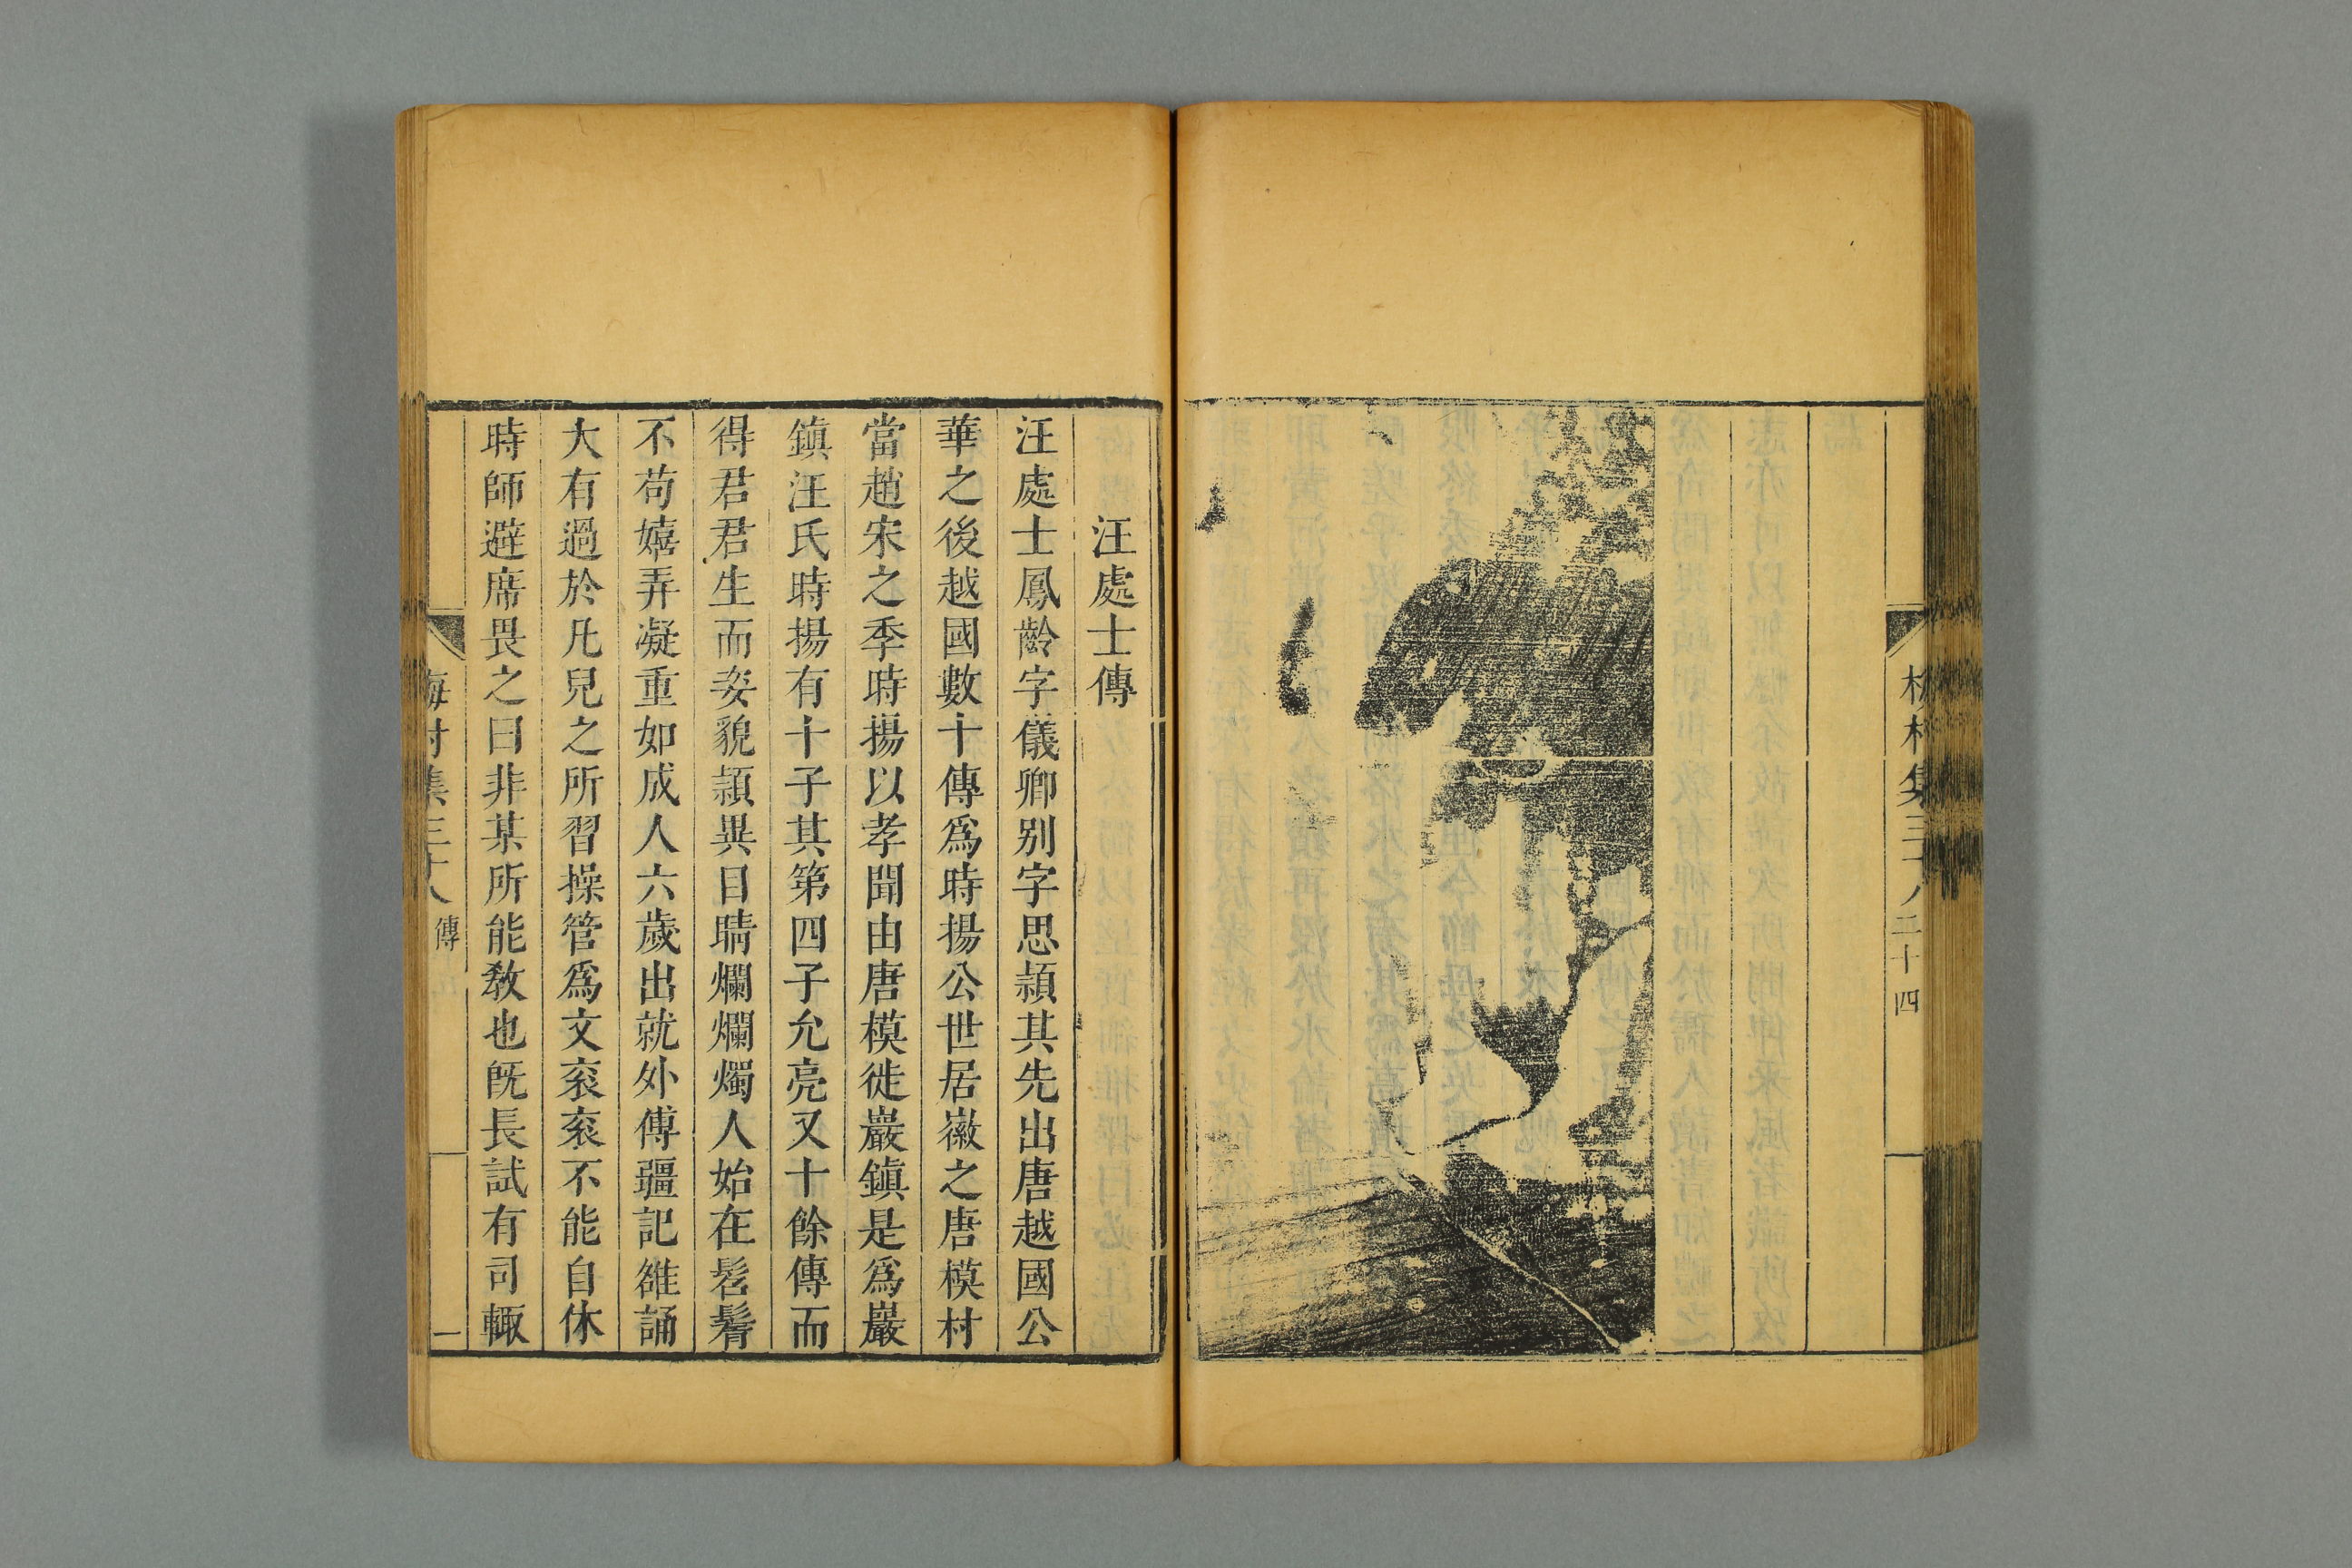 梅村集三十八 二十四
汪處士傳
汪處士鳳齡字儀卿别字思頴其先出唐越國公
華之後越國數十傳爲時揚公世居徽之唐模村
當趙宋之季時揚以孝聞由唐模徙巖鎮是爲巖
鎮汪氏時揚有十子其第四子允亮又十餘傳而
得君君生而姿貌頴異目睛爛爛燭人始在髫鬌
不苟嬉弄凝重如成人六歲出就外傅彊記雒誦
大有過於凡兒之所習操管爲文衮衮不能自休
時師避席畏之曰非某所能教也旣長試有司輒
梅村集三十八 傳 一